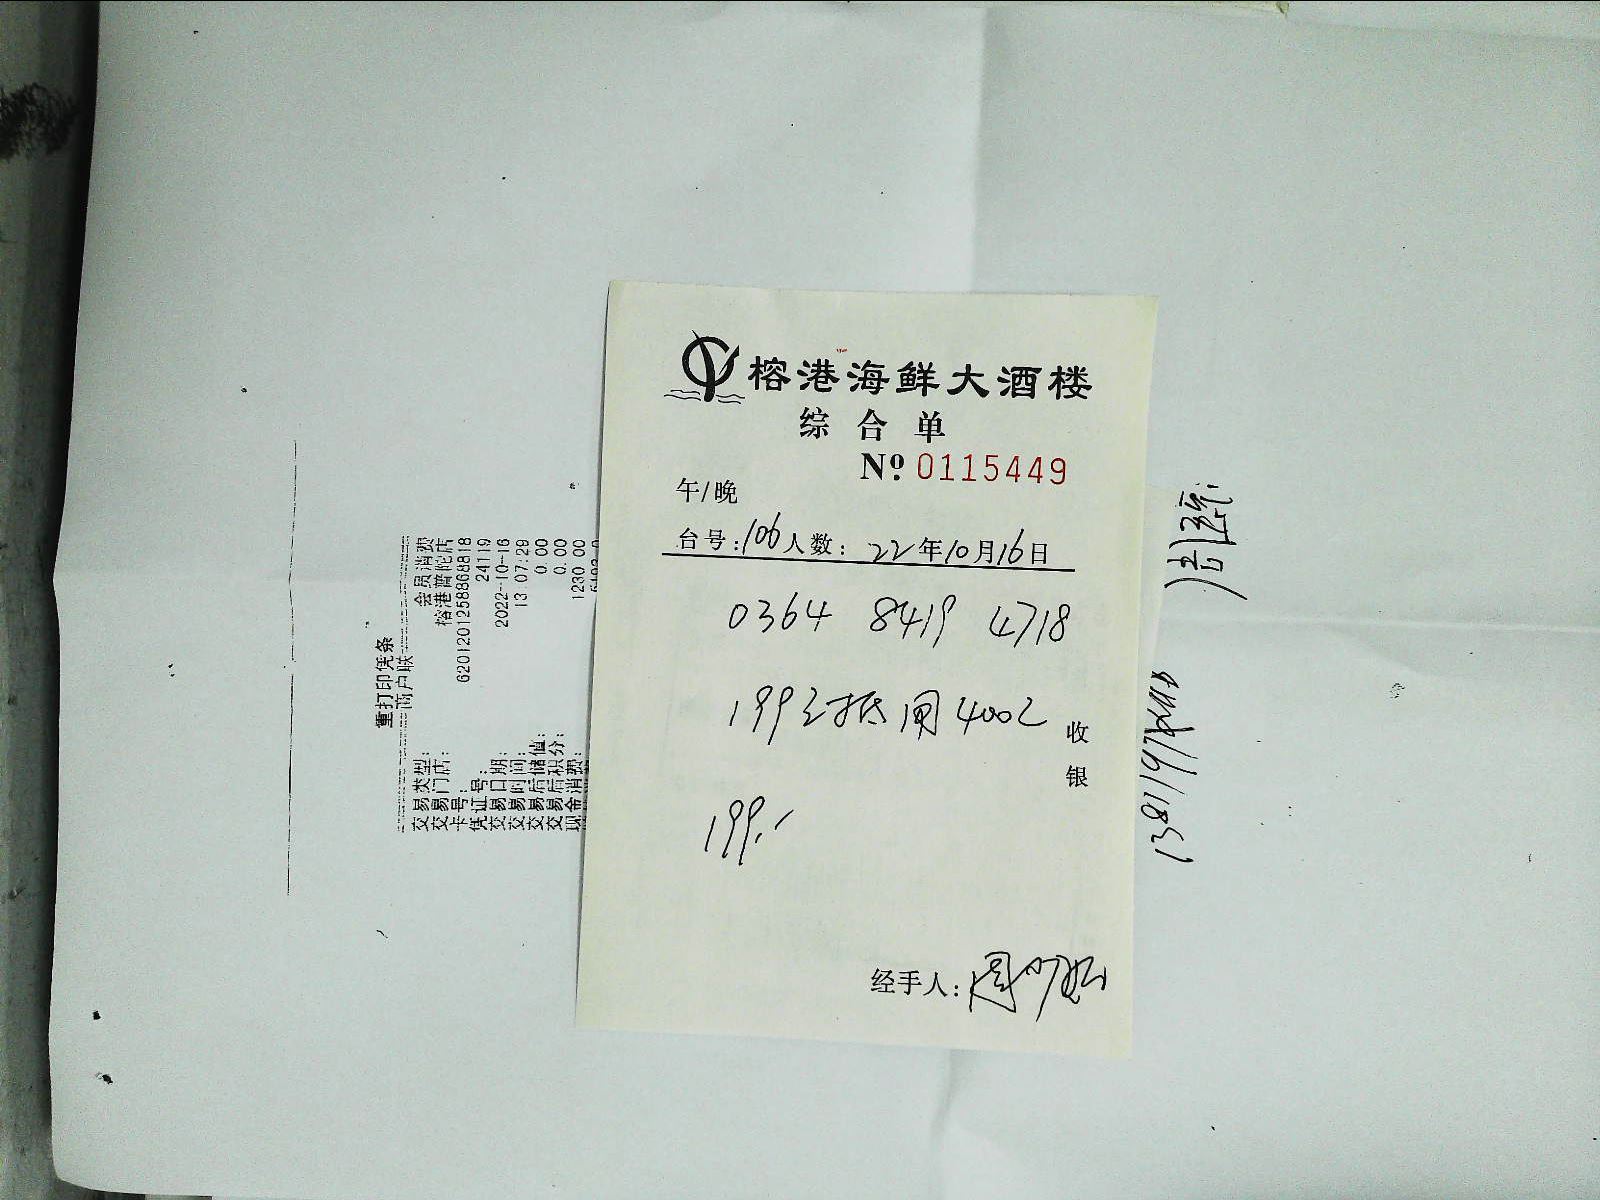 榕港海鲜大酒楼
综合单
№ 0115449
午/晚
台号:106 人数: 22年10月16日
0364 8419 4718
199元抵用400元
收银
199.-
经手人:
重打印凭条
商户联
交易类型: 会员消费
交易门店: 榕港普陀店
卡号: 6201201258868818
凭证号: 24119
交易日期: 2022-10-16
交易时间: 13 07:29
交易后储值: 0.00
交易后积分: 0.00
现金消费: 1230.00